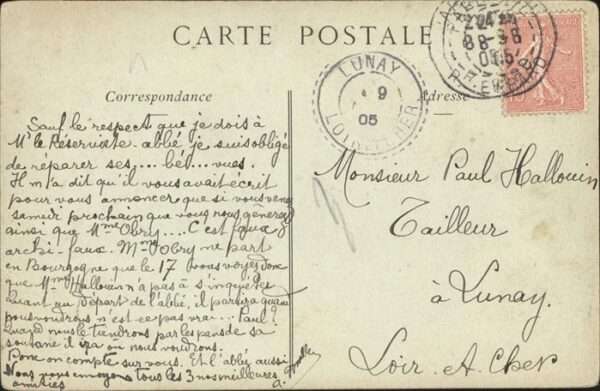 CARTE POSTALE
Correspondance
Adresse
LUNAY
9
05
LOIR-ET-CHER
Sauf le respect que je dois à
Mr le Réserviste-abbé je suis obligé
de réparer ses... bé... vues.
Il m'a dit qu'il vous avait écrit
pour vous annoncer que si vous venez
samedi prochain que vous nous gênerez
ainsi que Mme Obry.... C'est faux
archi-faux. Mme Obry ne part
en Bourgogne que le 17 vous voyez donc
que Mme Hallouin n'a pas à s'inquiéter
quant au départ de l'abbé, il partira quand
nous voudrons n'est-ce pas vrai... Paul?
quand nous le tiendrons par les pans de sa
soutane il ira où nous voudrons.
Donc on compte sur vous. Et l'abbé aussi
Nous vous envoyons tous les 3 nos meilleures
amitiés
Monsieur Paul Hallouin
Tailleur
à Lunay.
Loir et Cher